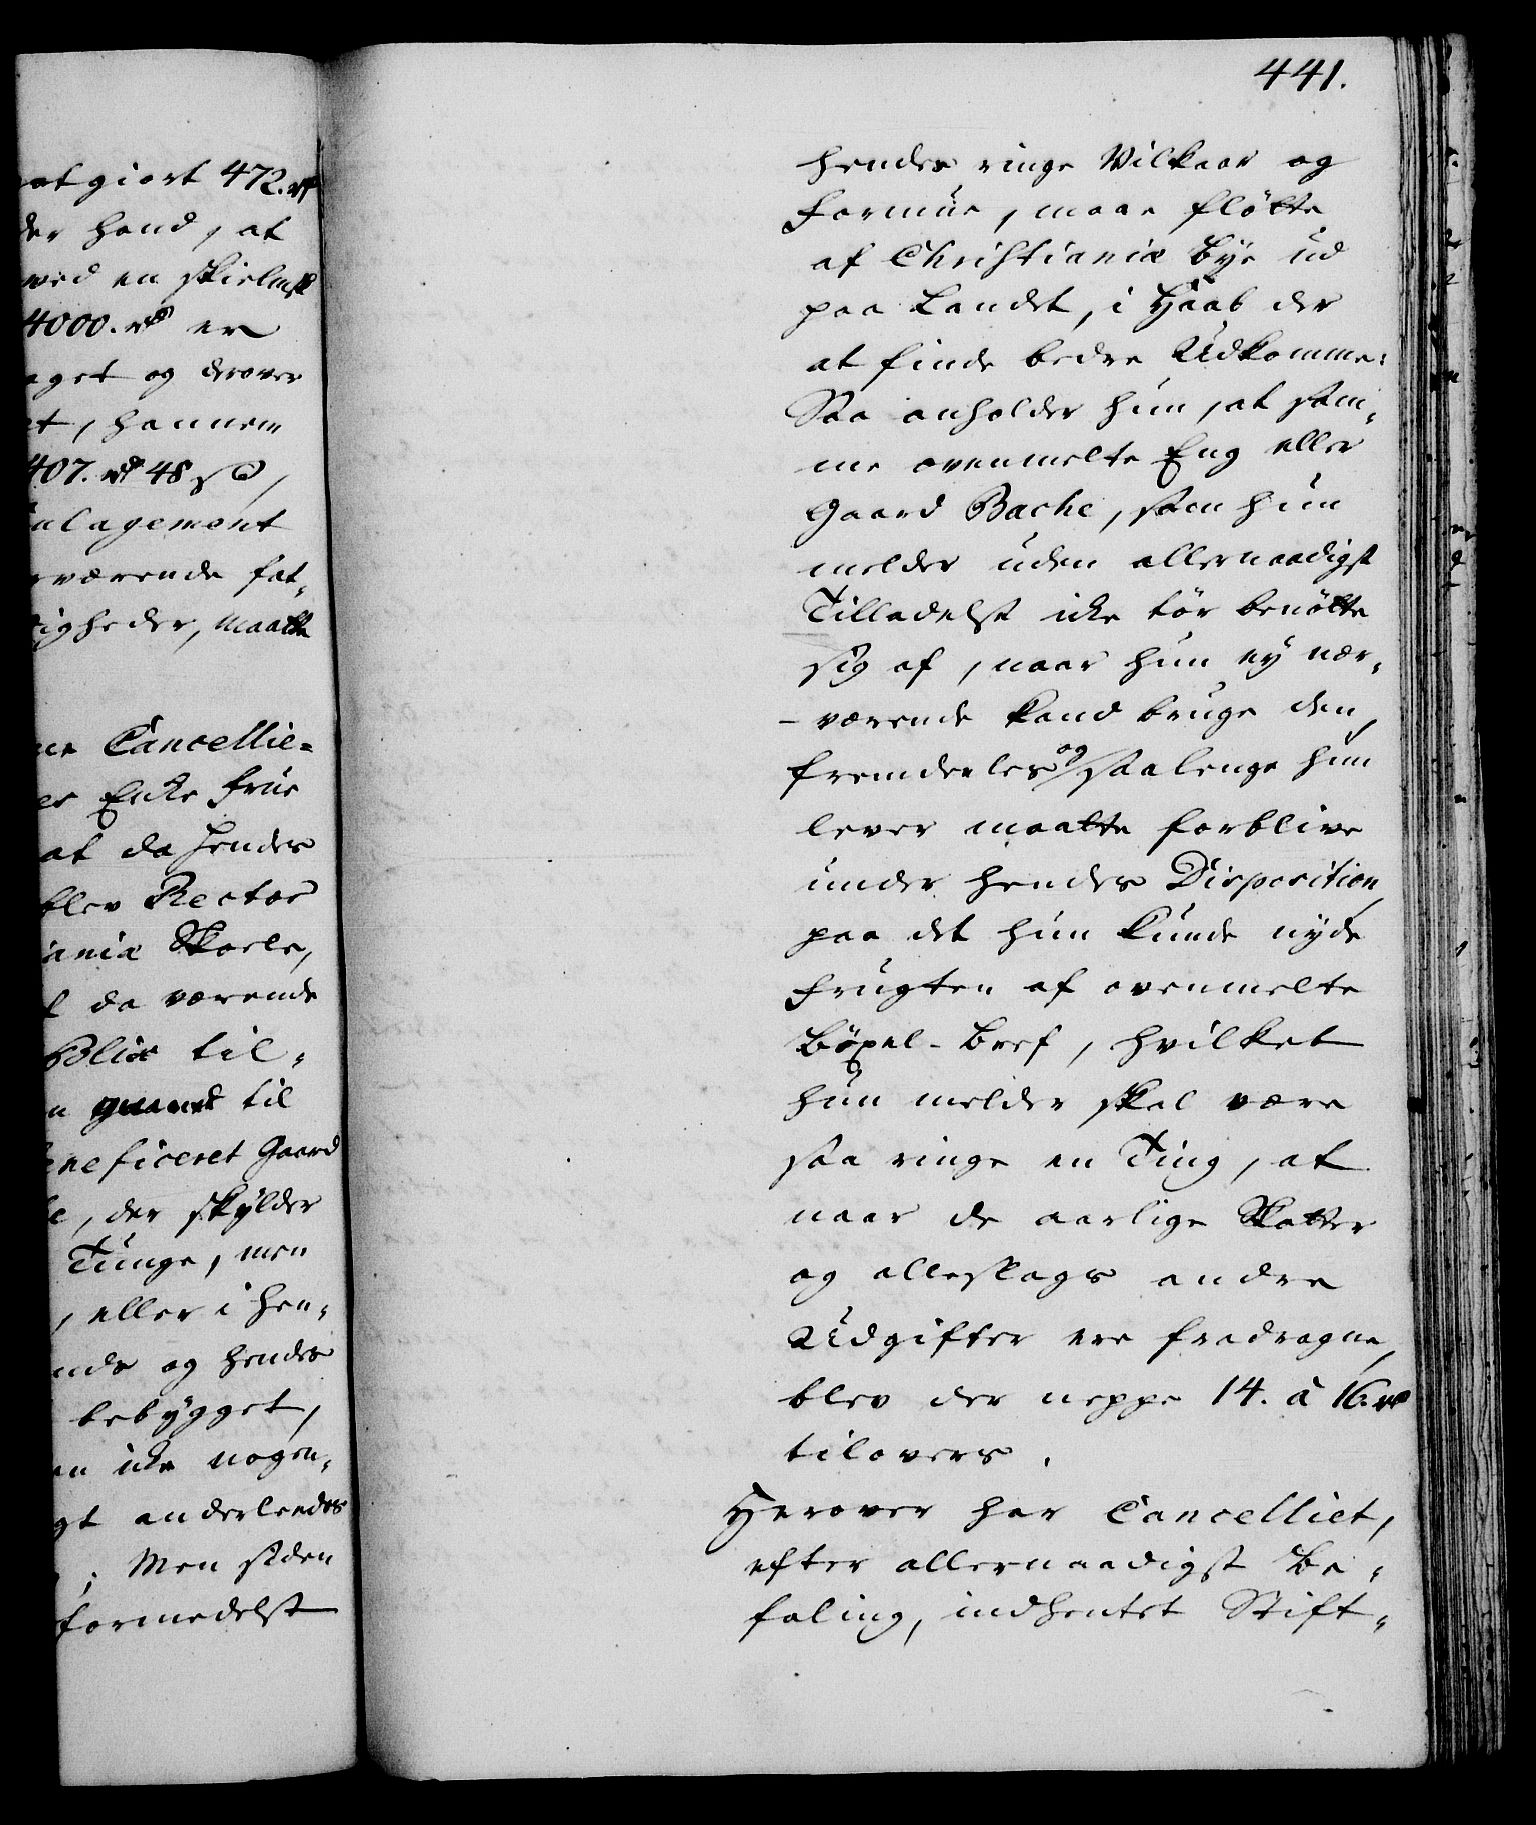 atgiort 472. rd
der hand, at
med en skielmsk
4000. rd er
aget og derover
et, hannem
407. rd 48 s
alagement
værende fat-
igheder, maatte
ne Cancellie-
es Enke Frue
at da hendes
blev Rector
ania Skoele,
l da værende
til-
n til
neficeret Gaard
e, der skylder
Tunge, men
, eller i hen-
nds og hendes
bebygget,
en icke nogen-
gt anderleedes
; Men siden
formedelst
441.
hendes ringe Vilkaar og
Formue, maae flötte
af Christianiæ Bÿe ud
paa Landet, i Haab der
at finde bedre Udkomme:
Saa anholder hun, at sam-
me ovenmelte Eng eller
Gaard Bache, som hun
melder uden allernaadigst
Tilladelse icke tör benötte
sig af, naar hun eÿ nær-
værende kand bruge den,
fremdeeles og saalenge hun
lever maatte forblive
under hendes Disposition,
paa det hun kunde nyde
Frugten af ovenmelte
Böxel-Bref, hvilket
hun melder skal være
saa ringe en Ting, at
naar de aarlige Skatter
og alleslags andre
Udgifter ere fradragne,
blev der neppe 14. à 16. rd
tilovers.
Herover har Cancelliet,
efter allernaadigst Be-
faling, indhentet Stift-